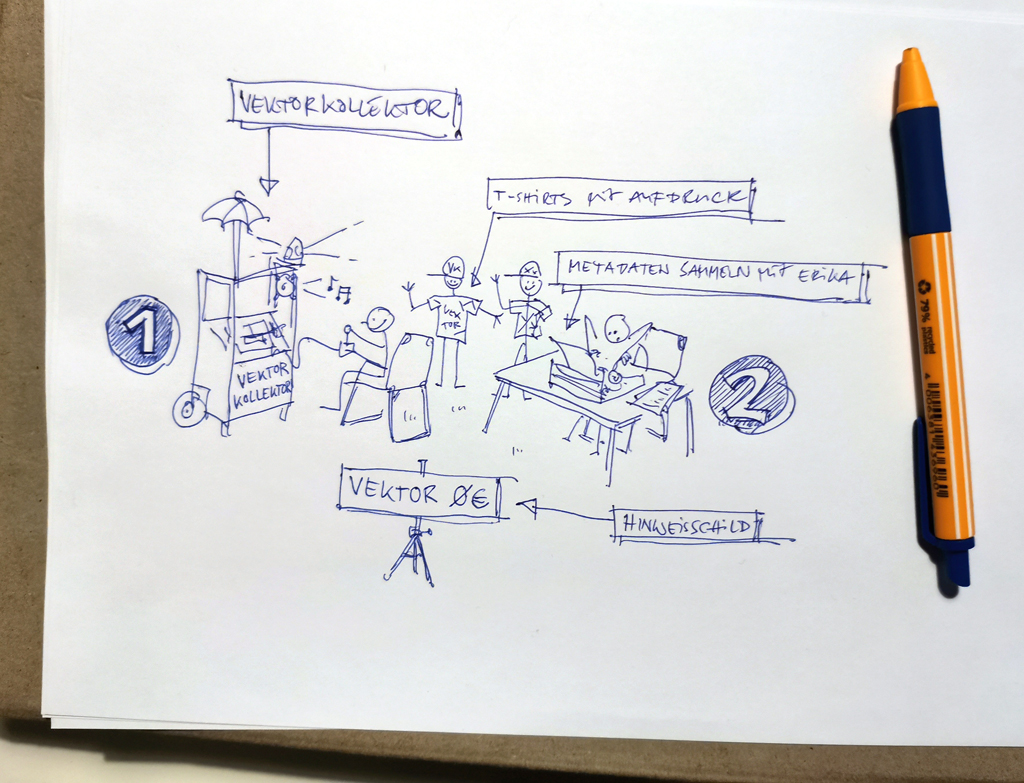 VEKTORKOLLEKTOR
T-SHIRTS MIT AUFDRUCK
METADATEN SAMMELN MIT ERIKA
1
VK
VEK
TOR
VEKTOR
KOLLEKTOR
2
VEKTOR Ø€
HINWEISSCHILD
79%